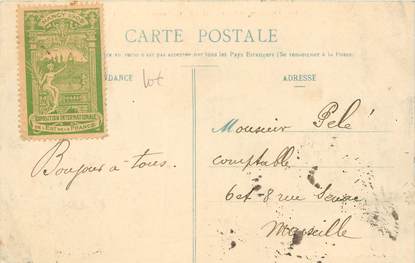 NANCY 1909
EXPOSITION INTERNATIONALE
DE L'EST DE LA FRANCE
CARTE POSTALE
n'est pas acceptée par tous les Pays Étrangers (Se renseigner à la Poste)
DANCE
ADRESSE
lot
Monsieur Pelé
comptable
6 et 8 rue
Marseille
Bonjour à tous.